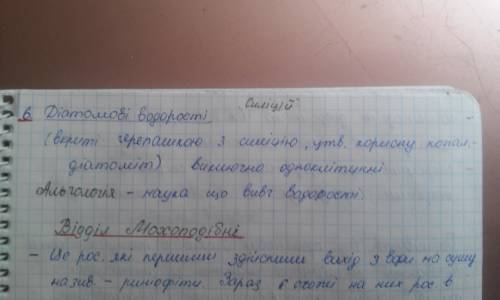 Силіцій
6. Діатомові водорості
(вкриті черепашкою з силіцію, утв. корисну копал.-
діатоміт) виключно одноклітинні
Альгологія - наука що вивч водорості.
Відділ Мохоподібні
- Це рос. які першими здійснили вихід з води на сушу
назив. - риніофіти. Зараз є схожі на них рос. в